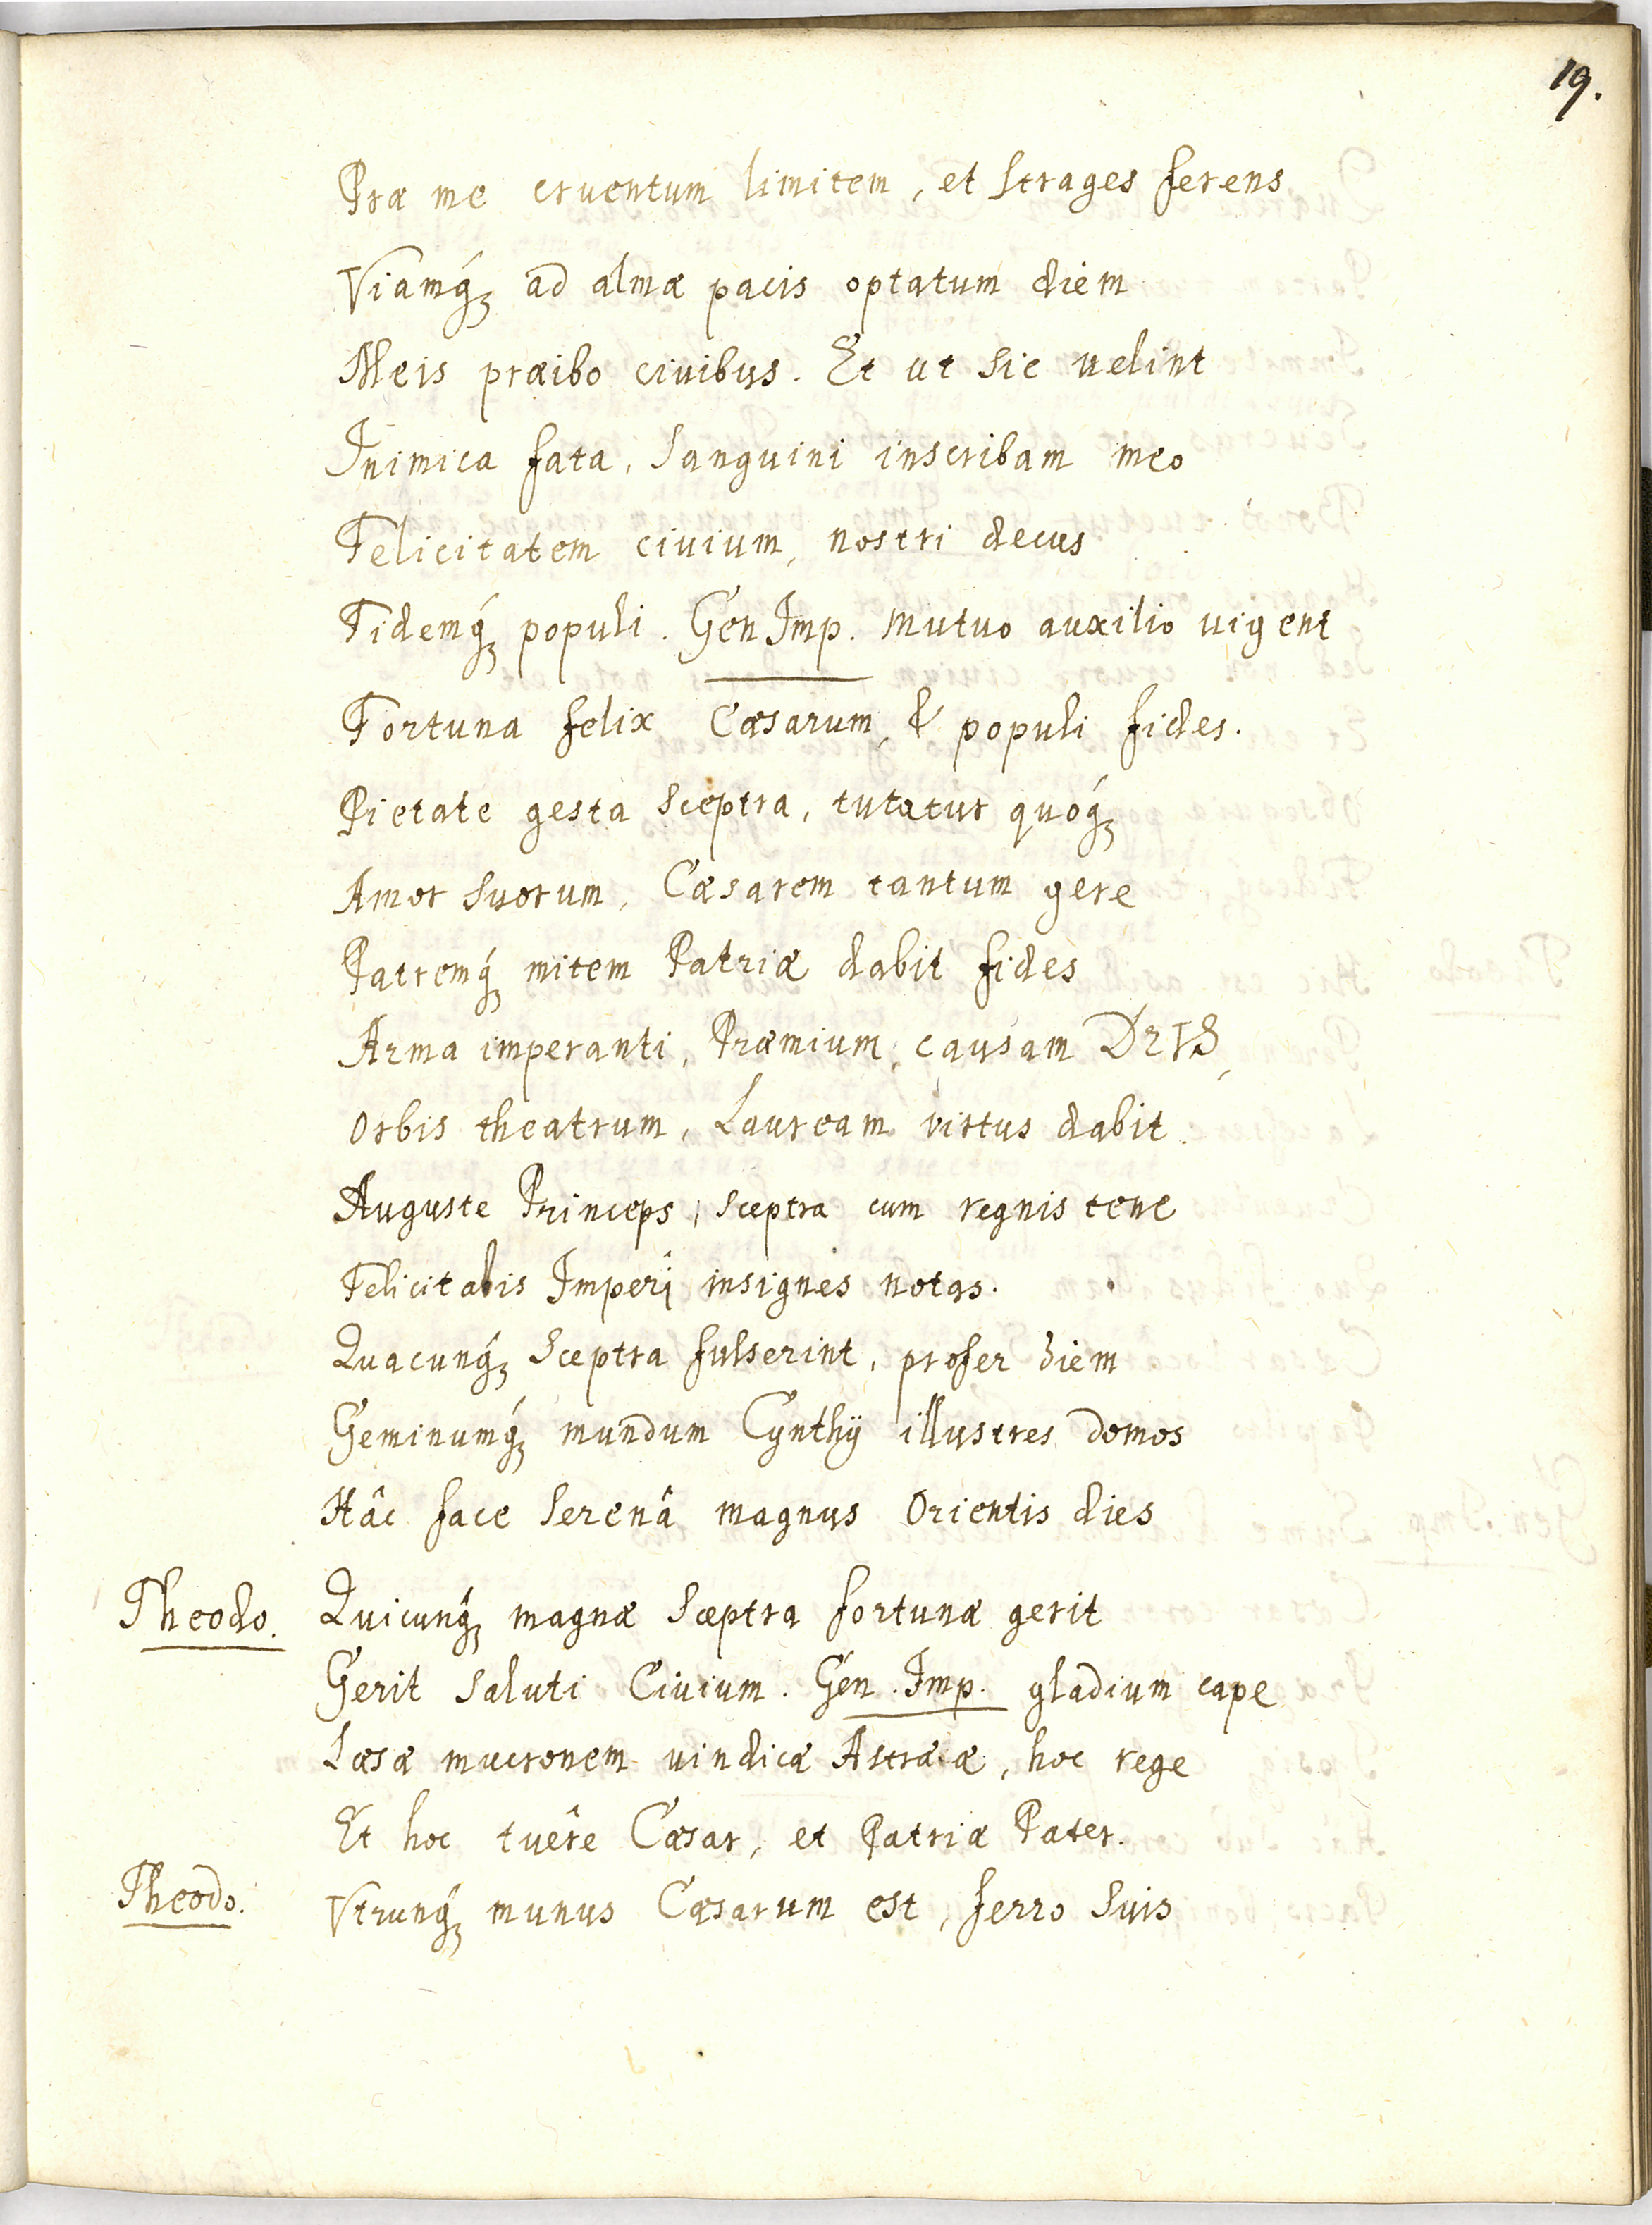 19.
Præ me cruentum limitem, et strages ferens
Viamq́ꝫ ad almæ pacis optatum diem
Meis præibo ciuibus. Et ut sic uelint
Inimica fata, sanguini inscribam meo
Felicitatem ciuium, nostri decus
Fidemq́ꝫ populi. Gen Imp. mutuo auxilio uigent
Fortuna felix Cæsarum, & populi fides.
Pietate gesta sceptra, tutatur quóq́ꝫ
Amor suorum, Cæsarem tantum gere
Patremq́ꝫ mitem Patriæ dabit fides
Arma imperanti, Præmium, causam DEVS,
Orbis theatrum, Lauream virtus dabit.
Auguste Princeps, sceptra cum regnis tene
Felicitabis Imperij insignes notas.
Quacunq́ꝫ sceptra fulserint, profer diem
Geminumq́ꝫ mundum Cynthij illustres domos
Hâc face serenâ magnus Orientis dies
Theodo. Quicunq́ꝫ magnæ sceptra fortunæ gerit
Gerit saluti Ciuium. Gen. Imp. gladium cape
Læsæ mucronem uindicæ Astrææ, hoc rege
Et hoc tuêre Cæsar, et Patriæ Pater.
Theodo. Vtrunq́ꝫ munus Cæsarum est, ferro suis